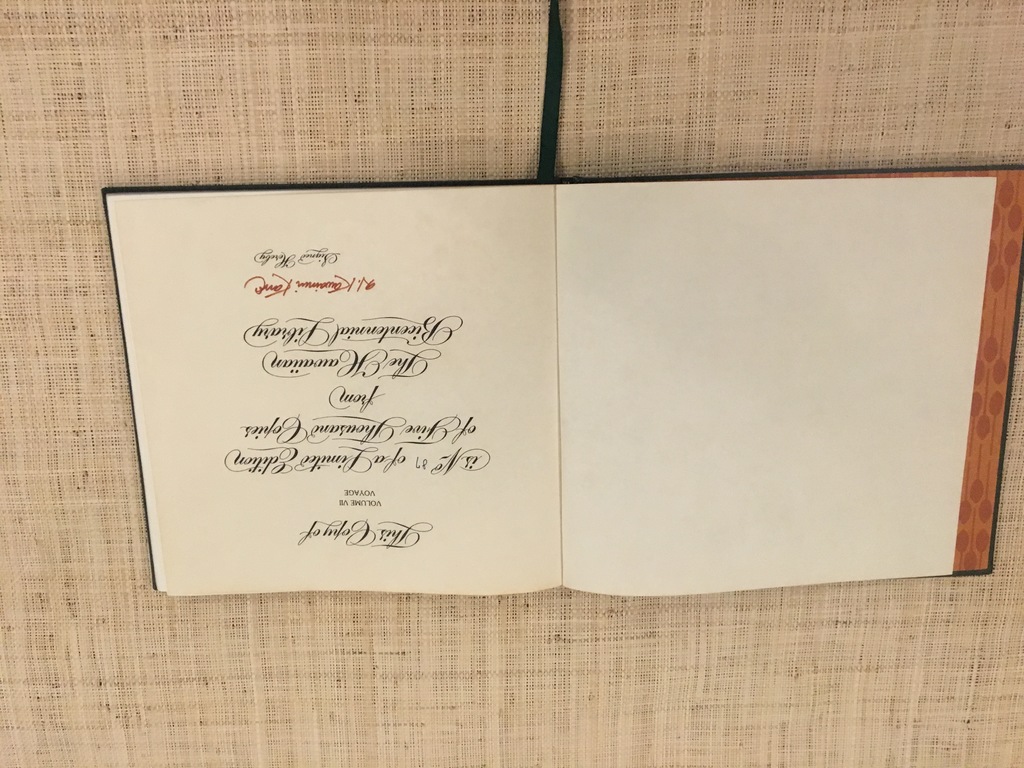 This Copy of
VOLUME VII
VOYAGE
is No of a Limited Edition
of Five Thousand Copies
from
The Hawaiian
Bicentennial Library
Kawainui Kane
Signed Hereby